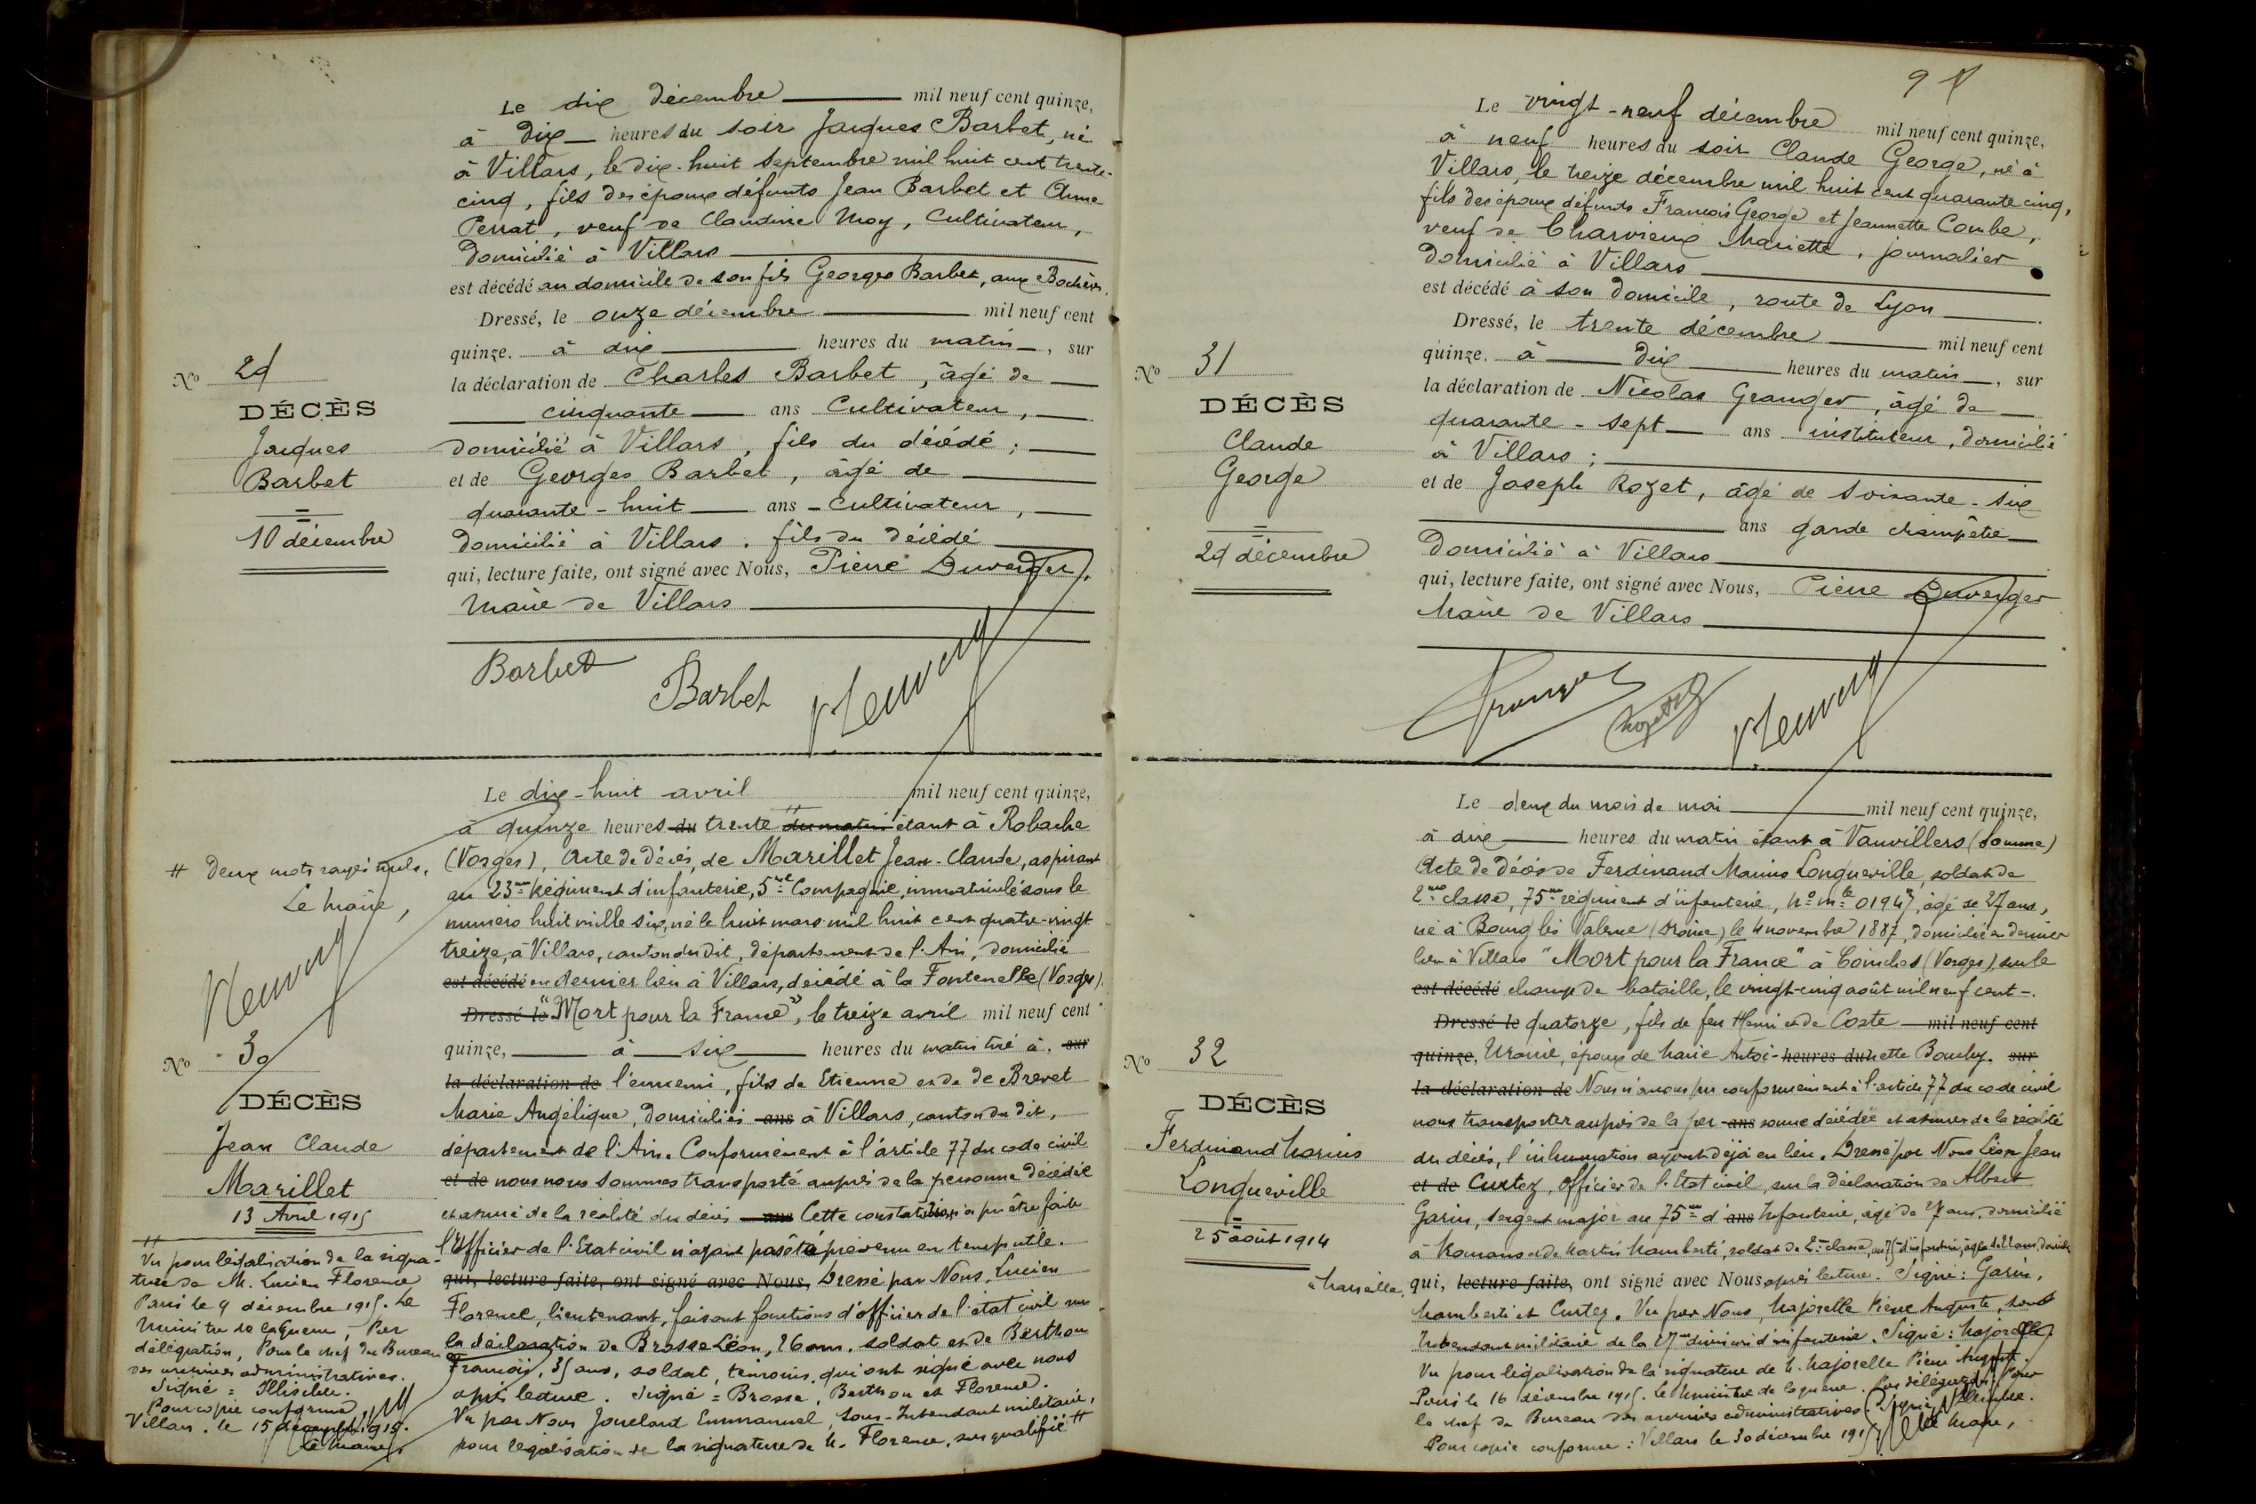 Le dix décembre mil neuf cent quinze,
à dix heures du soir Jacques Barbet, né
à Villars, le dix-huit septembre mil huit cent trente-
cinq, fils des époux défunts Jean Barbet et Anne
Perrat, veuf de Claudine Moy, Cultivateur,
domicilié à Villars
est décédé au domicile de son fils Georges Barbet, aux Bochères.
Dressé, le onze décembre mil neuf cent
quinze. à dix heures du matin, sur
la déclaration de Charles Barbet, âgé de
cinquante ans Cultivateur,
domicilié à Villars, fils du décédé;
et de Georges Barbet, âgé de
quarante-huit ans - Cultivateur,
domicilié à Villars. fils du décédé
qui, lecture faite, ont signé avec Nous, Pierre Duverger,
Maire de Villars
Barbet Barbet
No 29
DÉCÈS
Jacques
Barbet
10 décembre
Le dix-huit avril mil neuf cent quinze,
à quinze heures du trente du matin étant à Robache
(Vosges), Acte de décès, de Marillet Jean-Claude, aspirant
au 23me Régiment d'infanterie, 5me Compagnie, immatriculé sous le
numéro huit mille six, né le huit mars mil huit cent quatre-vingt
treize, à Villars, canton du dit, département de l'Ain, domicilié
est décédé en dernier lieu à Villars, décédé à la Fontenelle (Vosges).
Dressé le "Mort pour la France", le treize avril mil neuf cent
quinze, à six heures du matin tué à, sur
la déclaration de l'ennemi, fils de Etienne et de de Brevet
Marie Angélique, domiciliés ans à Villars, canton du dit,
département de l'Ain. Conformément à l'article 77 du code civil
et de nous nous sommes transporté auprès de la personne décédée
et assuré de la réalité du décès ans Cette constatation n'a pu être faite
l'Officier de l'Etat civil n'ayant pas été prévenu en temps utile.
qui, lecture faite, ont signé avec Nous, Dressé par Nous, Lucien
Florence, lieutenant, faisant fonctions d'officier de l'état civil sur
la déclaration de Brosse Léon, 26 ans, soldat et de Berthon
François, 35 ans, soldat, témoins, qui ont signé avec nous
après lecture. Signé = Brosse, Berthon et Florence.
Vu par Nous Jouclard Emmanuel, Sous-Intendant militaire,
pour légalisation de la signature de M. Florence, sus qualifié #
# Deux mots rayés nuls.
Le Maire,
No 30
DÉCÈS
Jean Claude
Marillet
13 Avril 1915
#
Vu pour légalisation de la signa-
ture de M. Lucien Florence
Paris le 9 décembre 1915. Le
Ministre de la Guerre, Par
délégation, Pour le chef du Bureau
des archives administratives.
Signé =
Pour copie conforme
Villars, le 15 décembre 1915.
Le Maire,
9
Le vingt-neuf décembre mil neuf cent quinze,
à neuf heures du soir Claude George, né à
Villars, le treize décembre mil huit cent quarante cinq,
fils des époux défunts François George et Jeannette Combe,
veuf de Charvieux Mariette, journalier
domicilié à Villars
est décédé à son domicile, route de Lyon
Dressé, le trente décembre mil neuf cent
quinze. à dix heures du matin, sur
la déclaration de Nicolas Granger, âgé de
quarante-sept ans instituteur, domicilié
à Villars;
et de Joseph Rozet, âgé de soixante-six
ans garde champêtre
domicilié à Villars
qui, lecture faite, ont signé avec Nous, Pierre Duverger
Maire de Villars
No 31
DÉCÈS
Claude
George
29 décembre
Le deux du mois de mai mil neuf cent quinze,
à dix heures du matin étant à Vauvillers (Somme)
Acte de décès de Ferdinand Marius Longueville, soldat de
2me classe, 75me régiment d'infanterie, No Mle 01947, âgé de 27 ans,
né à Bourg lès Valence (Drôme) le 4 novembre 1887, domicilié en dernier
lieu à Villars "Mort pour la France" à Coinches (Vosges), sur le
est décédé champ de bataille, le vingt-cinq août mil neuf cent -.
Dressé le quatorze, fils de feu Henri et de Coste mil neuf cent
quinze, Uranie, époux de Marie Antoi- heures du nette Bouchy. sur
la déclaration de Nous n'avons pu conformément à l'article 77 du code civil
nous transporter auprès de la per- ans sonne décédée et assurer de la réalité
du décès, l'inhumation ayant déjà eu lieu. Dressé par Nous Léon Jean
et de Curtez, Officier de l'Etat civil, sur la déclaration de Albert
Garin, sergent major au 75me d' ans Infanterie, âgé de 27 ans, domicilié
à Romans et de Martin Mamberti, soldat de 2me classe, au 75me d'infanterie, âgé de 22 ans, domicilié
à Marseille,
qui, lecture faite, ont signé avec Nous après lecture. Signé: Garin,
Mamberti et Curtez. Vu par Nous, Majorelle Pierre Auguste, sous
Intendant militaire de la 27me division d'infanterie. Signé: Majorelle
Vu pour légalisation de la signature de M. Majorelle Pierre Auguste
Paris le 16 décembre 1915. Le Ministre de la guerre. Par délégation, Pour
le chef du Bureau des archives administratives. Signé:
Pour copie conforme: Villars le 30 décembre 1915. Le Maire,
No 32
DÉCÈS
Ferdinand Marius
Longueville
25 août 1914